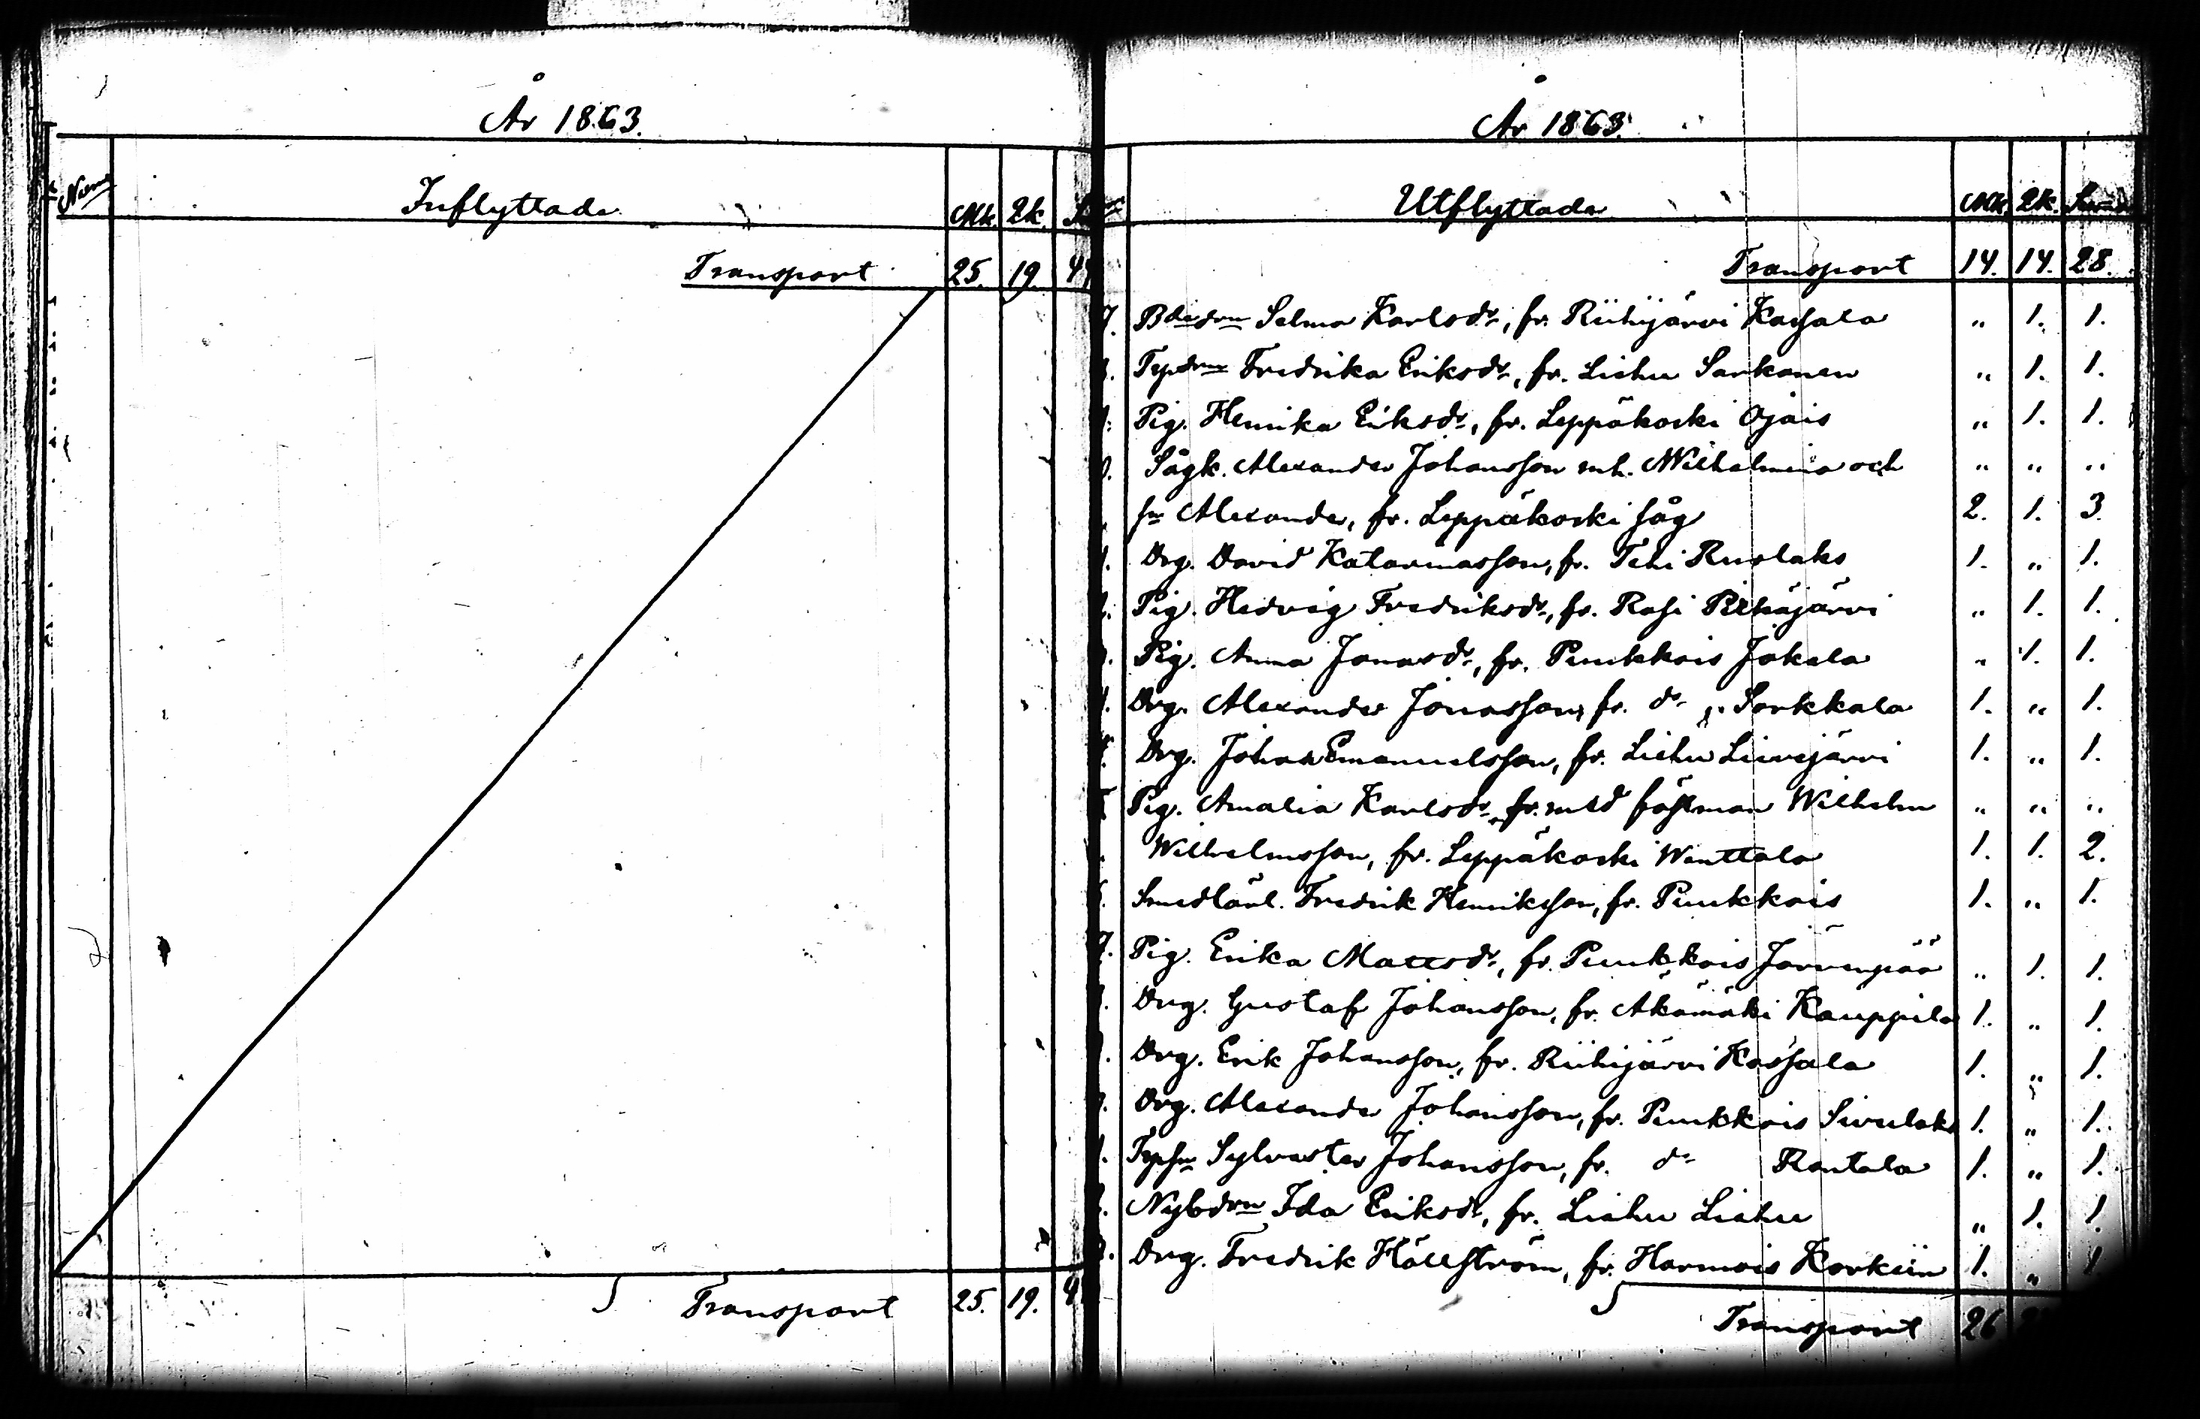 År 1863.
Inflyttade Mk. Qk.
Transport 25. 19.
Transport 25. 19.
År 1863.
Utflyttade Mk. Qk. Summa
Transport 14. 14. 28.
Bdedrn Selma Karlsdr, fr. Riihijärvi Kassala " 1. 1.
Tpdrn Fredrika Eriksdr, fr. Liehu Sarkanen " 1. 1.
Pig. Henrika Eriksdr, fr. Leppäkoski Ojais " 1. 1.
Sågk. Alexander Johansson mh. Wilhelmina och " " "
sn Alexander, fr. Leppäkoski såg 2. 1. 3.
Drg. David Katarinasson, fr. Ruolaks 1. " 1.
Pig. Hedvig Fredriksdr, fr. Rasi Pitkäjärvi " 1. 1.
Pig. Anna Jonasdr, fr. Puukkois Jokela " 1. 1.
Drg. Alexander Jonasson, fr. do Sarkkala 1. " 1.
Drg. Johan Emanuelsson, fr. Liehu Liivejärvi 1. " 1.
Pig. Amalia Karlsdr, fr. med fästman Wilhelm " " "
Wilhelmsson, fr. Leppäkoski Wanttala 1. 1. 2.
Smedlärl. Fredrik Henriksson, fr. Puukkois 1. " 1.
Pig. Erika Mattsdr, fr. Puukkois Järvenpää " 1. 1.
Drg. Gustaf Johansson, fr. Akämäki Kauppila 1. " 1.
Drg. Erik Johansson, fr. Riihijärvi Kassala 1. " 1.
Drg. Alexander Johansson, fr. Puukkois Sivulaks 1. " 1.
Tpsn Sylvester Johansson, fr. do Rantala 1. " 1.
Nybdrn Ida Eriksdr, fr. Liehu Liehu " 1. 1.
Drg. Fredrik Hällström, fr. Harmois Korkiin 1. " 1.
Transport 26